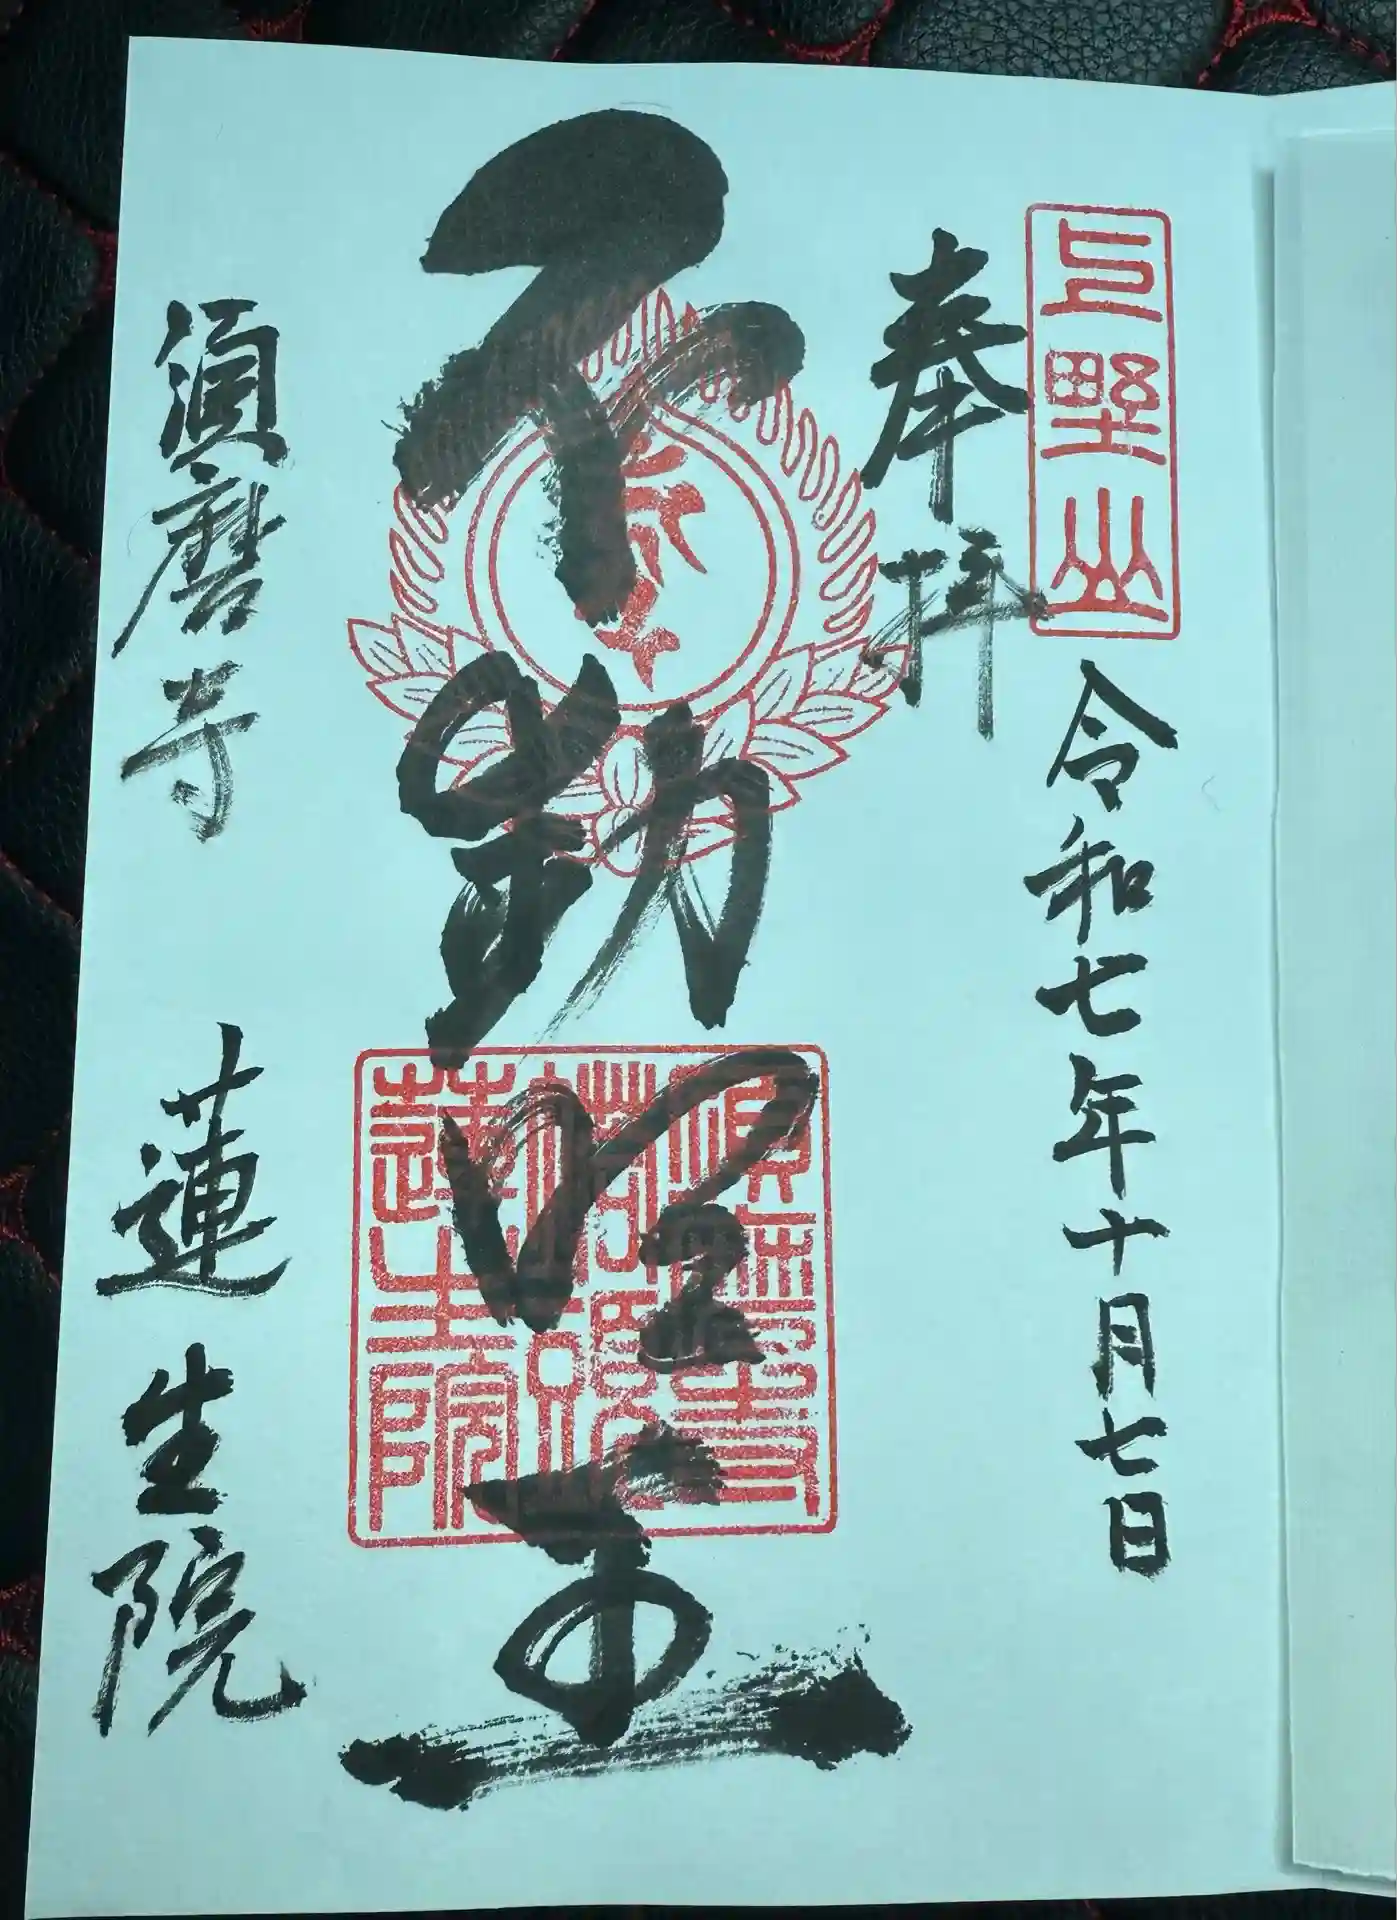 上野山
奉拝
令和七年十月七日
不動明王
須磨寺
蓮生院